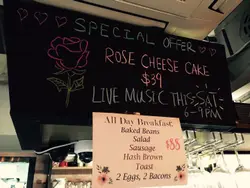 SPECIAL OFFER
ROSE CHEESE CAKE
$39
LIVE MUSIC THIS SAT
6-9PM
All Day Breakfast
Baked Beans
Salad
Sausage
Hash Brown
Toast
2 Eggs, 2 Bacons
$88